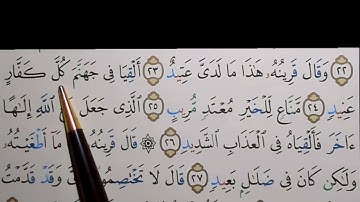 ٢٢ وَقَالَ قَرِينُهُۥ هَٰذَا مَا لَدَىَّ عَتِيدٌ ٢٣ أَلْقِيَا فِى جَهَنَّمَ كُلَّ كَفَّارٍ
عَنِيدٍ ٢٤ مَّنَّاعٍ لِّلْخَيْرِ مُعْتَدٍ مُّرِيبٍ ٢٥ ٱلَّذِى جَعَلَ مَعَ ٱللَّهِ إِلَٰهًا
ءَاخَرَ فَأَلْقِيَاهُ فِى ٱلْعَذَابِ ٱلشَّدِيدِ ٢٦ ۞ قَالَ قَرِينُهُۥ رَبَّنَا مَآ أَطْغَيْتُهُۥ
وَلَٰكِن كَانَ فِى ضَلَٰلٍۭ بَعِيدٍ ٢٧ قَالَ لَا تَخْتَصِمُوا۟ لَدَىَّ وَقَدْ قَدَّمْتُ